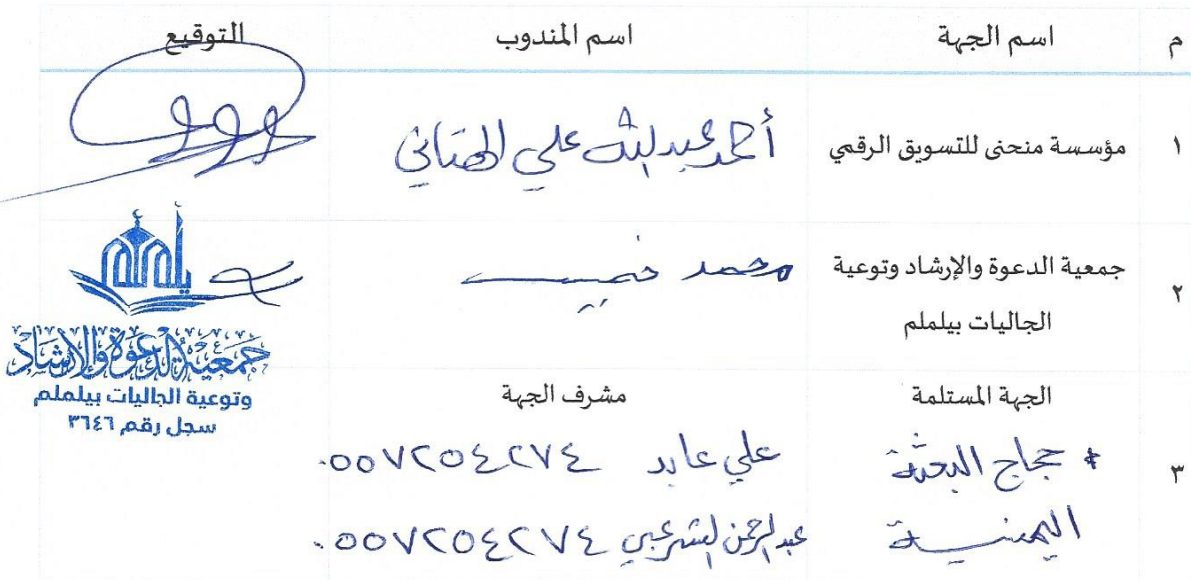 م اسم الجهة اسم المندوب التوقيع
١ مؤسسة منحنى للتسويق الرقمي أحمد عبدالله علي الهتاني
٢ جمعية الدعوة والإرشاد وتوعية الجاليات بيلملم محمد خميس
يلملم
جمعية الدعوة والإرشاد
وتوعية الجاليات بيلملم
سجل رقم ٣٦٤٦
الجهة المستلمة مشرف الجهة
٣ * حجاج البعثة علي عابد ٠٥٥٧٢٥٤٢٧٤
اليمنية عبدالرحمن الشرعبي ٠٥٥٧٢٥٤٢٧٤